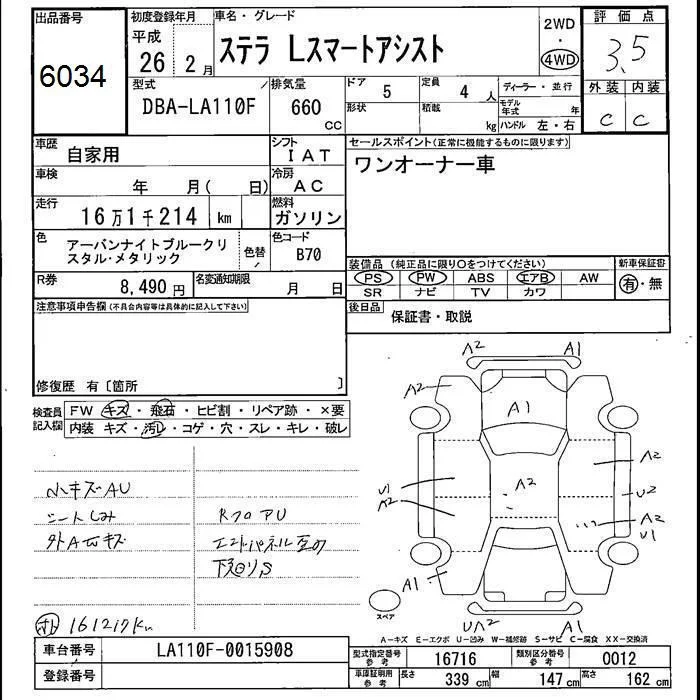 出品番号
6034
初度登録年月
平成
26 2月
車名・グレード
ステラ Lスマートアシスト
2WD
・
4WD
評価点
3.5
型式
DBA-LA110F
排気量
660
cc
ドア
5
定員
4 人
形状
積載
kg
ディーラー・並行
モデル年式 年
ハンドル 左・右
外装 内装
C C
車歴
自家用
シフト
IAT
車検
年 月( 日)
冷房
AC
走行
16万1千214 km
燃料
ガソリン
色
アーバンナイトブルークリスタル・メタリック
色替
色コード
B70
R券
8,490円
名変通知期限
月 日
セールスポイント(正常に機能するものに限ります)
ワンオーナー車
装備品 (純正品に限り○をつけてください)
新車保証書
PS PW ABS エアB AW
SR ナビ TV カワ
有・無
後日品
保証書・取説
注意事項申告欄(不具合内容等は具体的に記入して下さい)
修復歴 有〔箇所 〕
検査員記入欄
FW キズ・飛石・ヒビ割・リペア跡・×要
内装 キズ・汚れ・コゲ・穴・スレ・キレ・破レ
小キズAU
シートしみ
RフロアU
エンドパネル
下廻りS
161217Km
A2 A1
A2
A1
A2
U1
A2
A2
U2
A2
U1
A1
UA2 A1
スペア
A-キズ E-エクボ U-凹み W-補修跡 S-サビ C-腐食 XX-交換済
車台番号
LA110F-0015908
登録番号
型式指定番号
参考
16716
類別区分番号
参考
0012
車庫証明用
参考
長さ
339 cm
幅
147 cm
高さ
162 cm